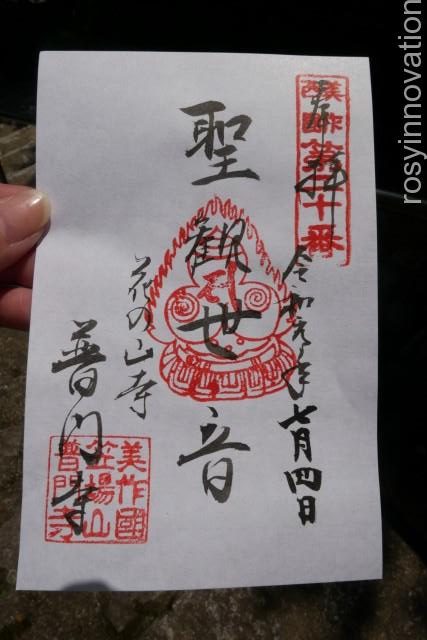 奉拝
令和元年七月四日
聖観世音
花の山寺
普門寺
美作國
笠場山
普門寺
rosyinnovation